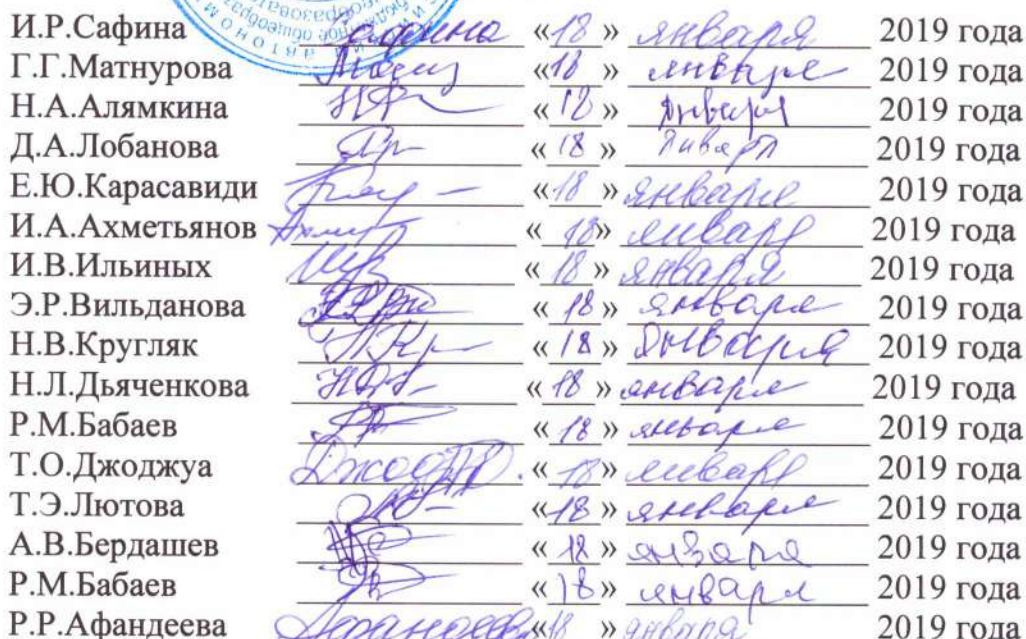 общеобразова
автоном
И.Р.Сафина Сафина «18» января 2019 года
Г.Г.Матнурова «18» января 2019 года
Н.А.Алямкина «18» января 2019 года
Д.А.Лобанова «18» января 2019 года
Е.Ю.Карасавиди «18» января 2019 года
И.А.Ахметьянов «18» января 2019 года
И.В.Ильиных «18» января 2019 года
Э.Р.Вильданова «18» января 2019 года
Н.В.Кругляк «18» января 2019 года
Н.Л.Дьяченкова «18» января 2019 года
Р.М.Бабаев «18» января 2019 года
Т.О.Джоджуа «18» января 2019 года
Т.Э.Лютова «18» января 2019 года
А.В.Бердашев «18» января 2019 года
Р.М.Бабаев «18» января 2019 года
Р.Р.Афандеева «18» января 2019 года